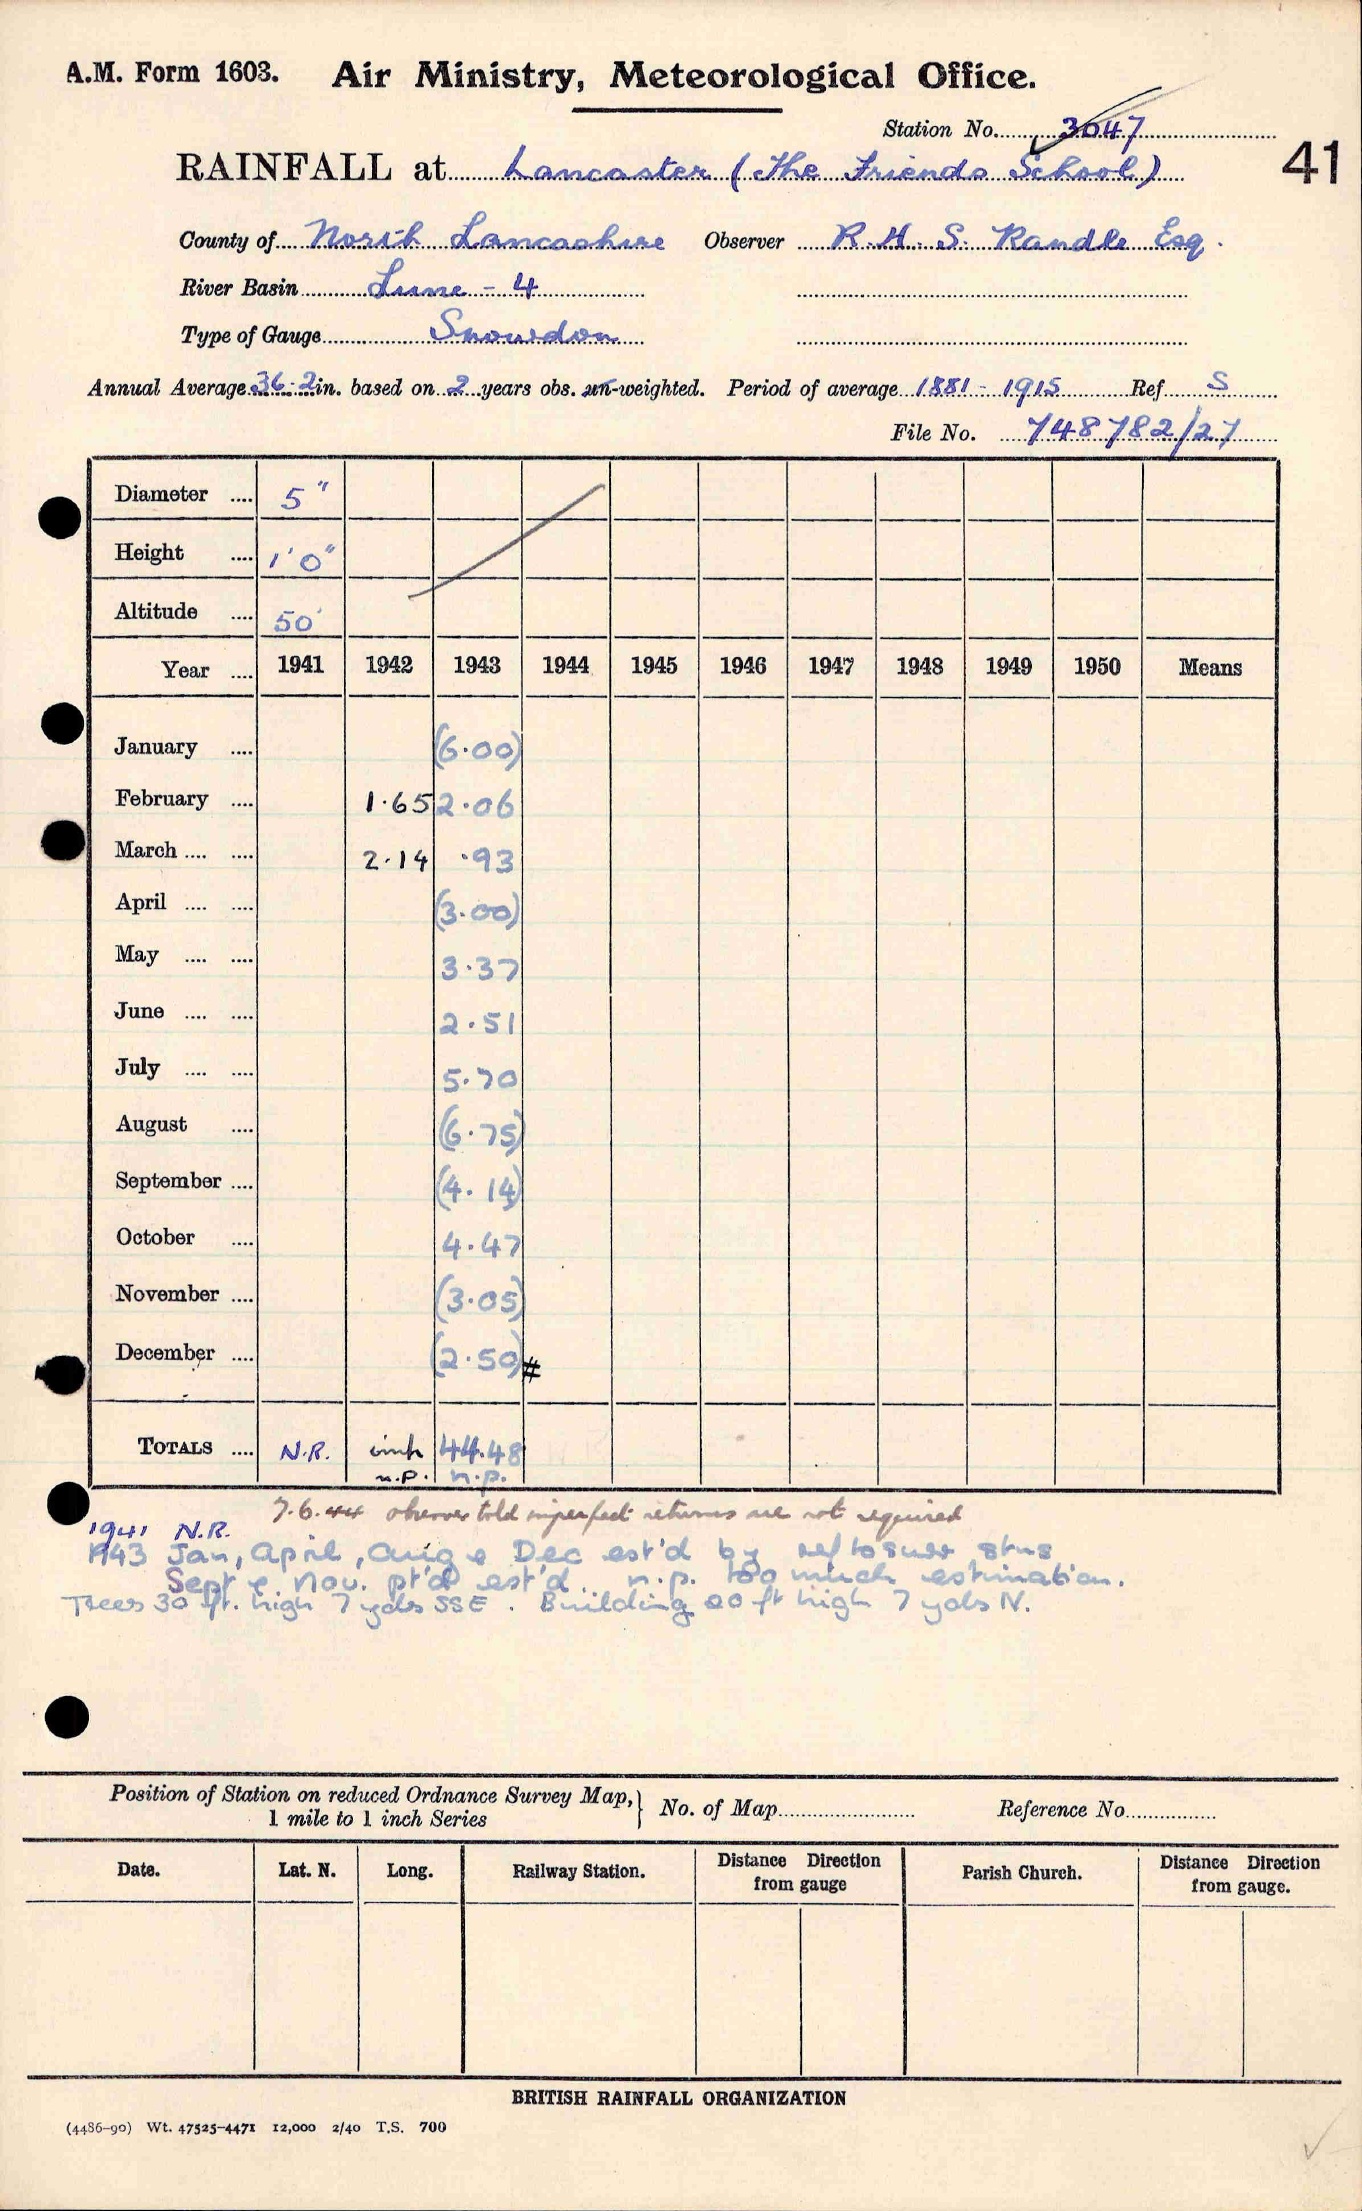 A.M. Form 1603. Air Ministry, Meteorological Office.
Station No. 3047
RAINFALL at Lancaster (The Friends School)
41
County of North Lancashire Observer R. H. S. Randle Esq.
River Basin Lune - 4
Type of Gauge Snowdon
Annual Average 36.2 in. based on 2 years obs. un-weighted. Period of average 1881 - 1915 Ref S
File No. 748782/27
Diameter .... 5"
Height .... 1'0"
Altitude .... 50'
Year .... 1941 1942 1943 1944 1945 1946 1947 1948 1949 1950 Means
January .... (6.00)
February .... 1.65 2.06
March .... .... 2.14 .93
April .... .... (3.00)
May .... .... 3.37
June .... .... 2.51
July .... .... 5.70
August .... (6.75)
September .... (4.14)
October .... 4.47
November .... (3.05)
December .... (2.50) #
TOTALS .... N.R. 44.48
n.p. n.p.
7.6.44 observer told imperfect returns are not required
1941 N.R.
1943 Jan, April, Aug & Dec est'd by ref to surr stns
Sept & Nov. pt'd est'd. n.p. too much estimation.
Trees 30 ft. high 7 yds SSE. Building 20 ft high 7 yds N.
Position of Station on reduced Ordnance Survey Map,
1 mile to 1 inch Series } No. of Map Reference No
Date. Lat. N. Long. Railway Station. Distance Direction from gauge Parish Church. Distance Direction from gauge.
BRITISH RAINFALL ORGANIZATION
(4486-90) Wt. 47525-4471 12,000 2/40 T.S. 700